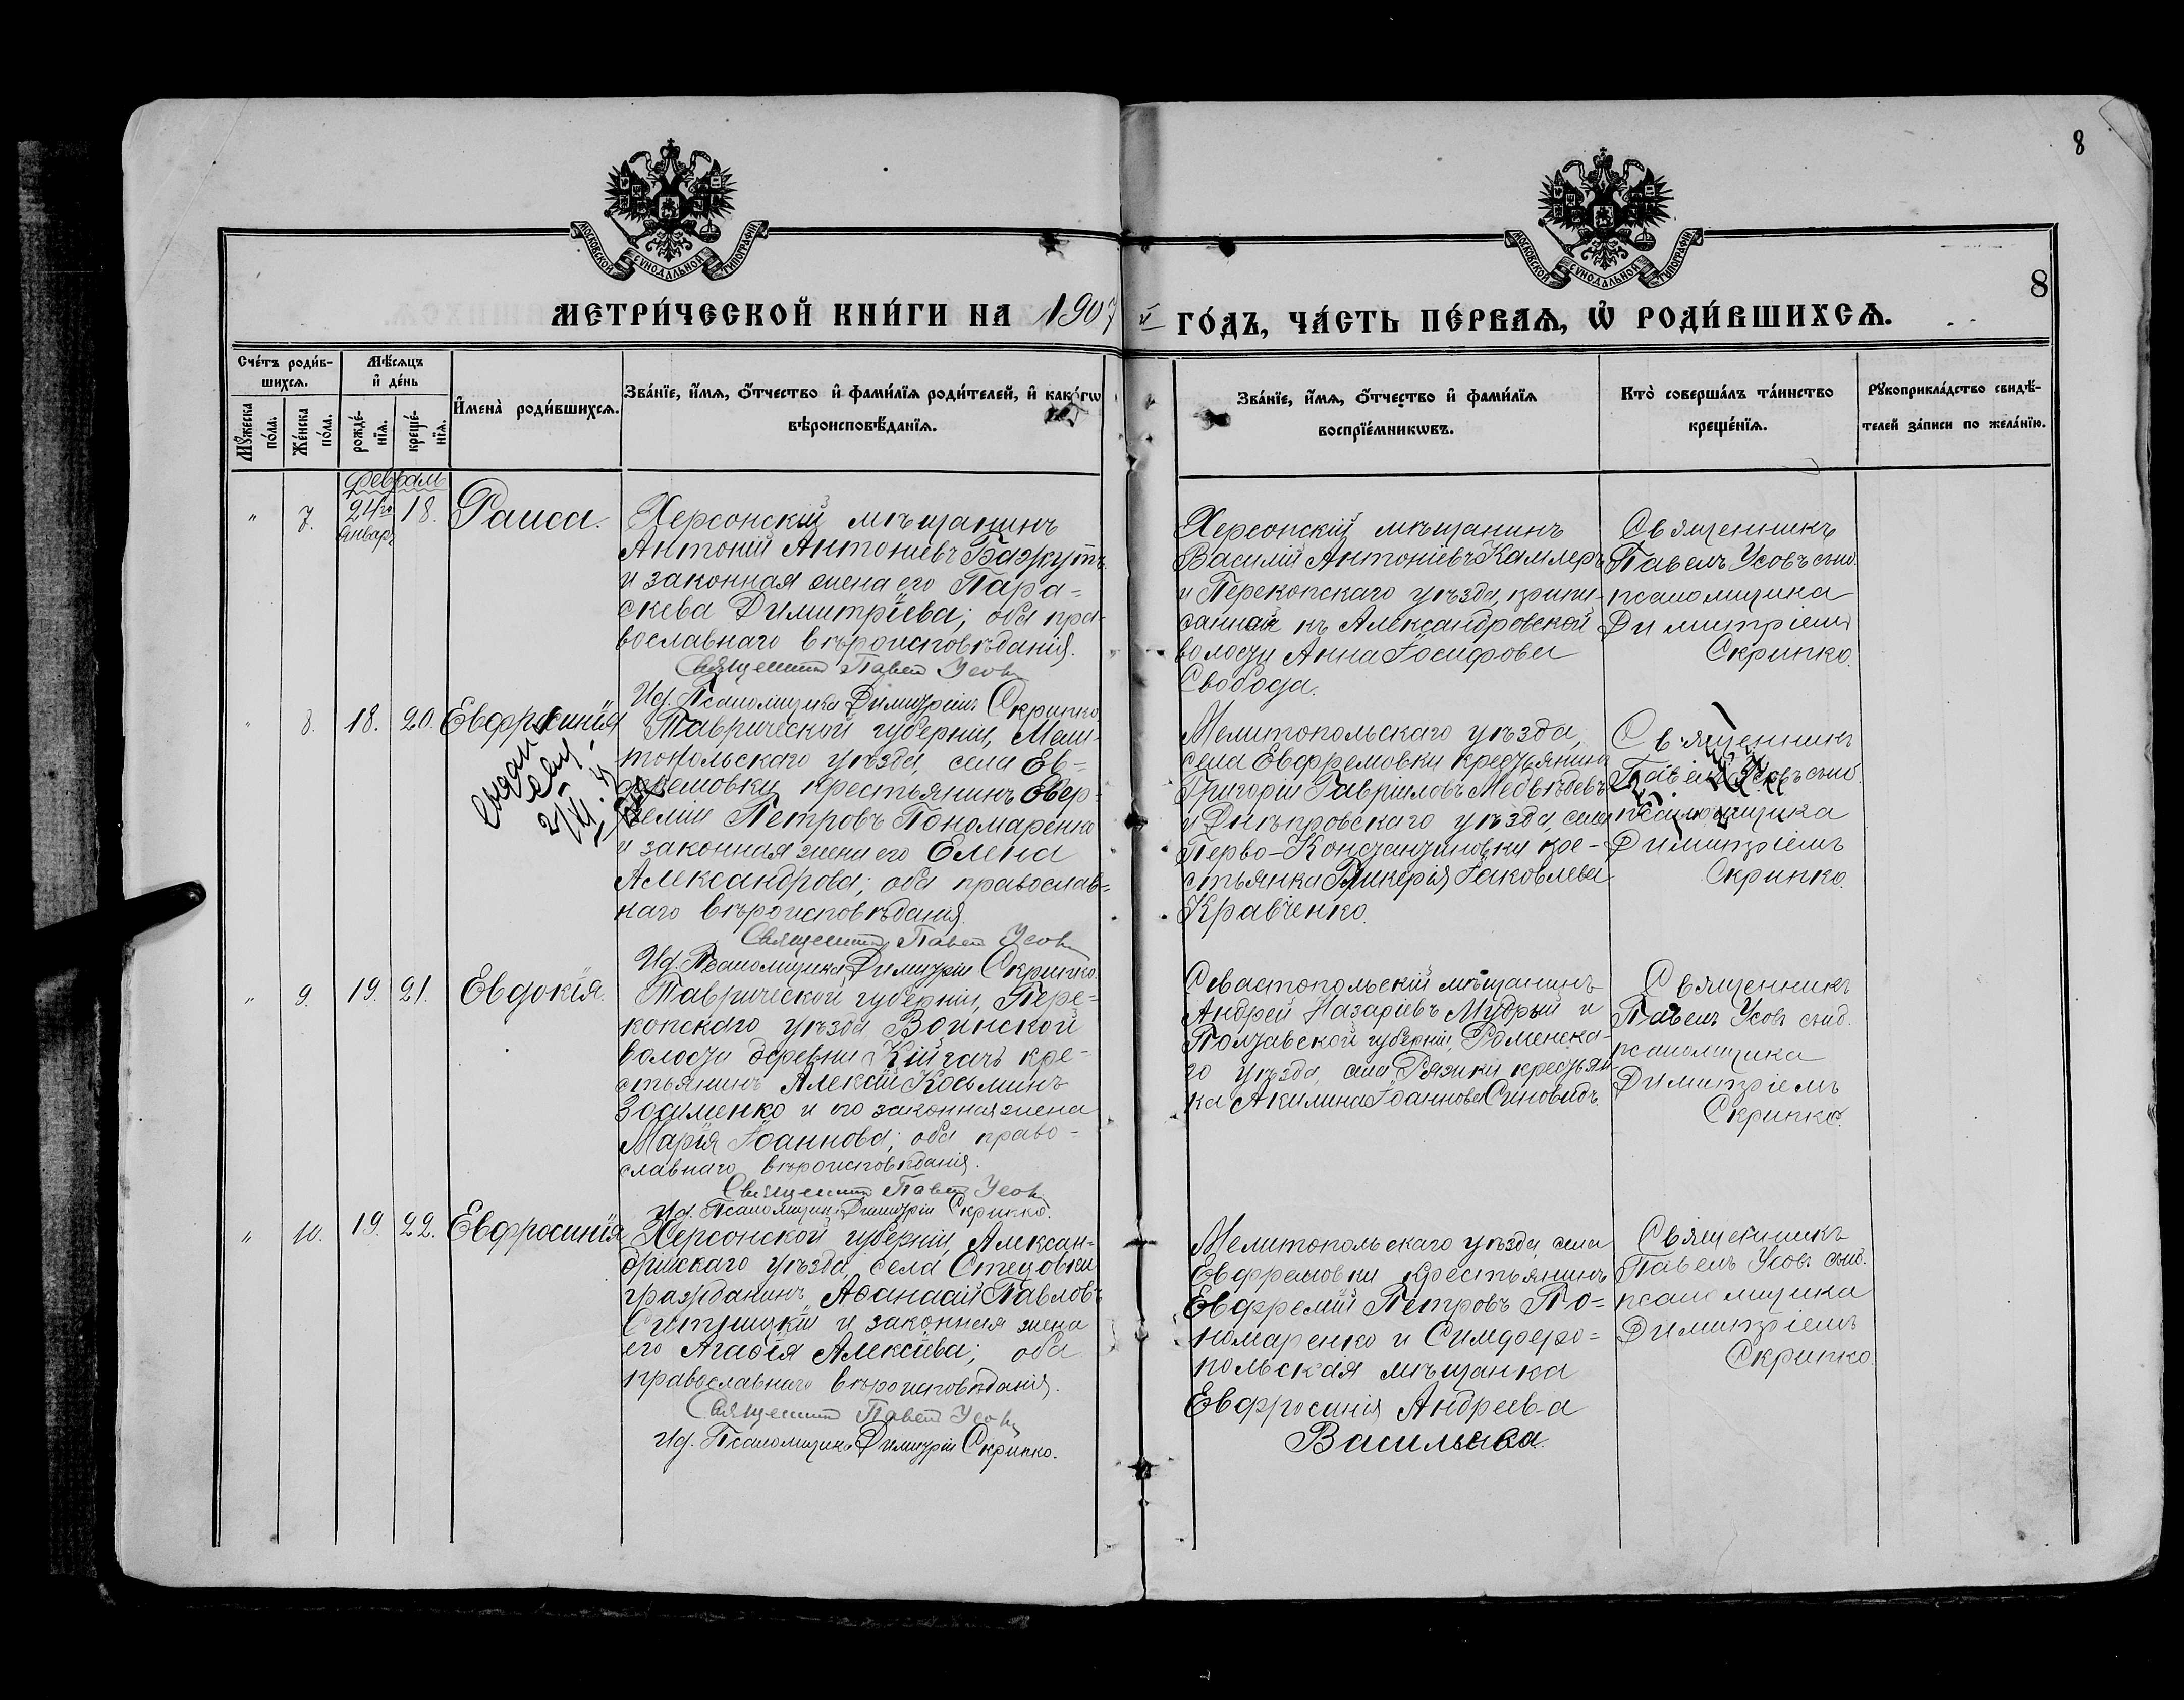 8
МОСКОВСКОЙ СУНОДАЛЬНОЙ ТИПОГРАФІИ
МОСКОВСКОЙ СУНОДАЛЬНОЙ ТИПОГРАФІИ
8
МЕТРИ́ЧЕСКОЙ КНИ́ГИ НА 1907 й ГО́ДЪ, ЧА́СТЬ ПЕ́РВАѦ, Ѡ҆ РОДИ́ВШИХСѦ.
Сче́тъ роди́в-
шихсѧ.
Мꙋ́жеска по́ла.
Же́нска по́ла.
Мѣ́сѧцъ
и҆ де́нь
рожде́-
нїѧ.
креще́-
нїѧ.
И҆мена̀ роди́вшихсѧ.
Зва́нїе, и҆́мѧ, ѻ҆́тчество и҆ фами́лїѧ роди́телей, и҆ како́гѡ
вѣроисповѣ́данїѧ.
Зва́нїе, и҆́мѧ, ѻ҆́тчество и҆ фами́лїѧ
воспрїе́мникѡвъ.
Кто̀ соверша́лъ та́инство
креще́нїѧ.
Рꙋкоприкла́дство свидѣ́-
телей за́писи по жела́нїю.
Февраль
" 7. 24го Январ 18. Раиса.
Херсонскій мѣщанинъ
Антоній Антоніевъ
и законная жена его Пара=
скева Димитріева; оба пра-
вославнаго вѣроисповѣданія.
Священникъ Павелъ Усовъ
И.д. Псаломщика Димитрій Скрипко
Херсонскій мѣщанинъ
Василій Антоніевъ Камлеръ
и Перекопскаго уѣзда, припи-
санная къ Александровской
волости Анна Іосифова
Свобода.
Священникъ
Павелъ Усовъ съ и.д.
псаломщика
Димитріемъ
Скрипко.
" 8. 18. 20. Евфросинія
Таврической губерніи, Мели-
топольскаго уѣзда, села Ев=
фремовки крестьянинъ Евф
ремій Петровъ Пономаренко
и законная жена его Елена
Александрова; оба православ=
наго вѣроисповѣданія.
Священникъ Павелъ Усовъ
И.д. Псаломщика Димитрій Скрипко.
Мелитопольскаго уѣзда,
села Евфремовки крестьянинъ
Григорій Гавріиловъ Медвѣдевъ
и Днѣпровскаго уѣзда, села
Перво-Константиновки кре-
стьянка Гликерія Іаковлева
Кравченко.
Священникъ
Павелъ Усовъ съ и.д.
псаломщика
Димитріемъ
Скрипко.
" 9. 19. 21. Евдокія.
Таврической губерніи, Пере=
копскаго уѣзда Воинской
волости деревни кре-
стьянинъ Алексій Косьминъ
и его законная жена
Марія Іоаннова; оба право=
славнаго вѣроисповѣданія.
Священникъ Павелъ Усовъ
И.д. Псаломщика Димитрій Скрипко.
Севастопольскій мѣщанинъ
Андрей Назаріевъ Мудрый и
Полтавской губерніи, Роменска-
го уѣзда, села крестьян
ка Акилина Іоаннова Синовидъ.
Священникъ
Павелъ Усовъ съ и.д.
псаломщика
Димитріемъ
Скрипко.
" 10. 19. 22. Евфросинія
Херсонской губерніи, Алексан=
дрійскаго уѣзда, села Стецовки
гражданинъ Аѳанасій Павловъ
и законная жена
его Агаѳія Алексіева; оба
православнаго вѣроисповѣданія.
Священникъ Павелъ Усовъ
И.д. Псаломщика Димитрій Скрипко.
Мелитопольскаго уѣзда, села
Евфремовки крестьянинъ
Евфремій Петровъ По=
номаренко и Симферо=
польская мѣщанка
Евфросинія Андреева
Васильева.
Священникъ
Павелъ Усовъ съ и.д.
псаломщика
Димитріемъ
Скрипко.